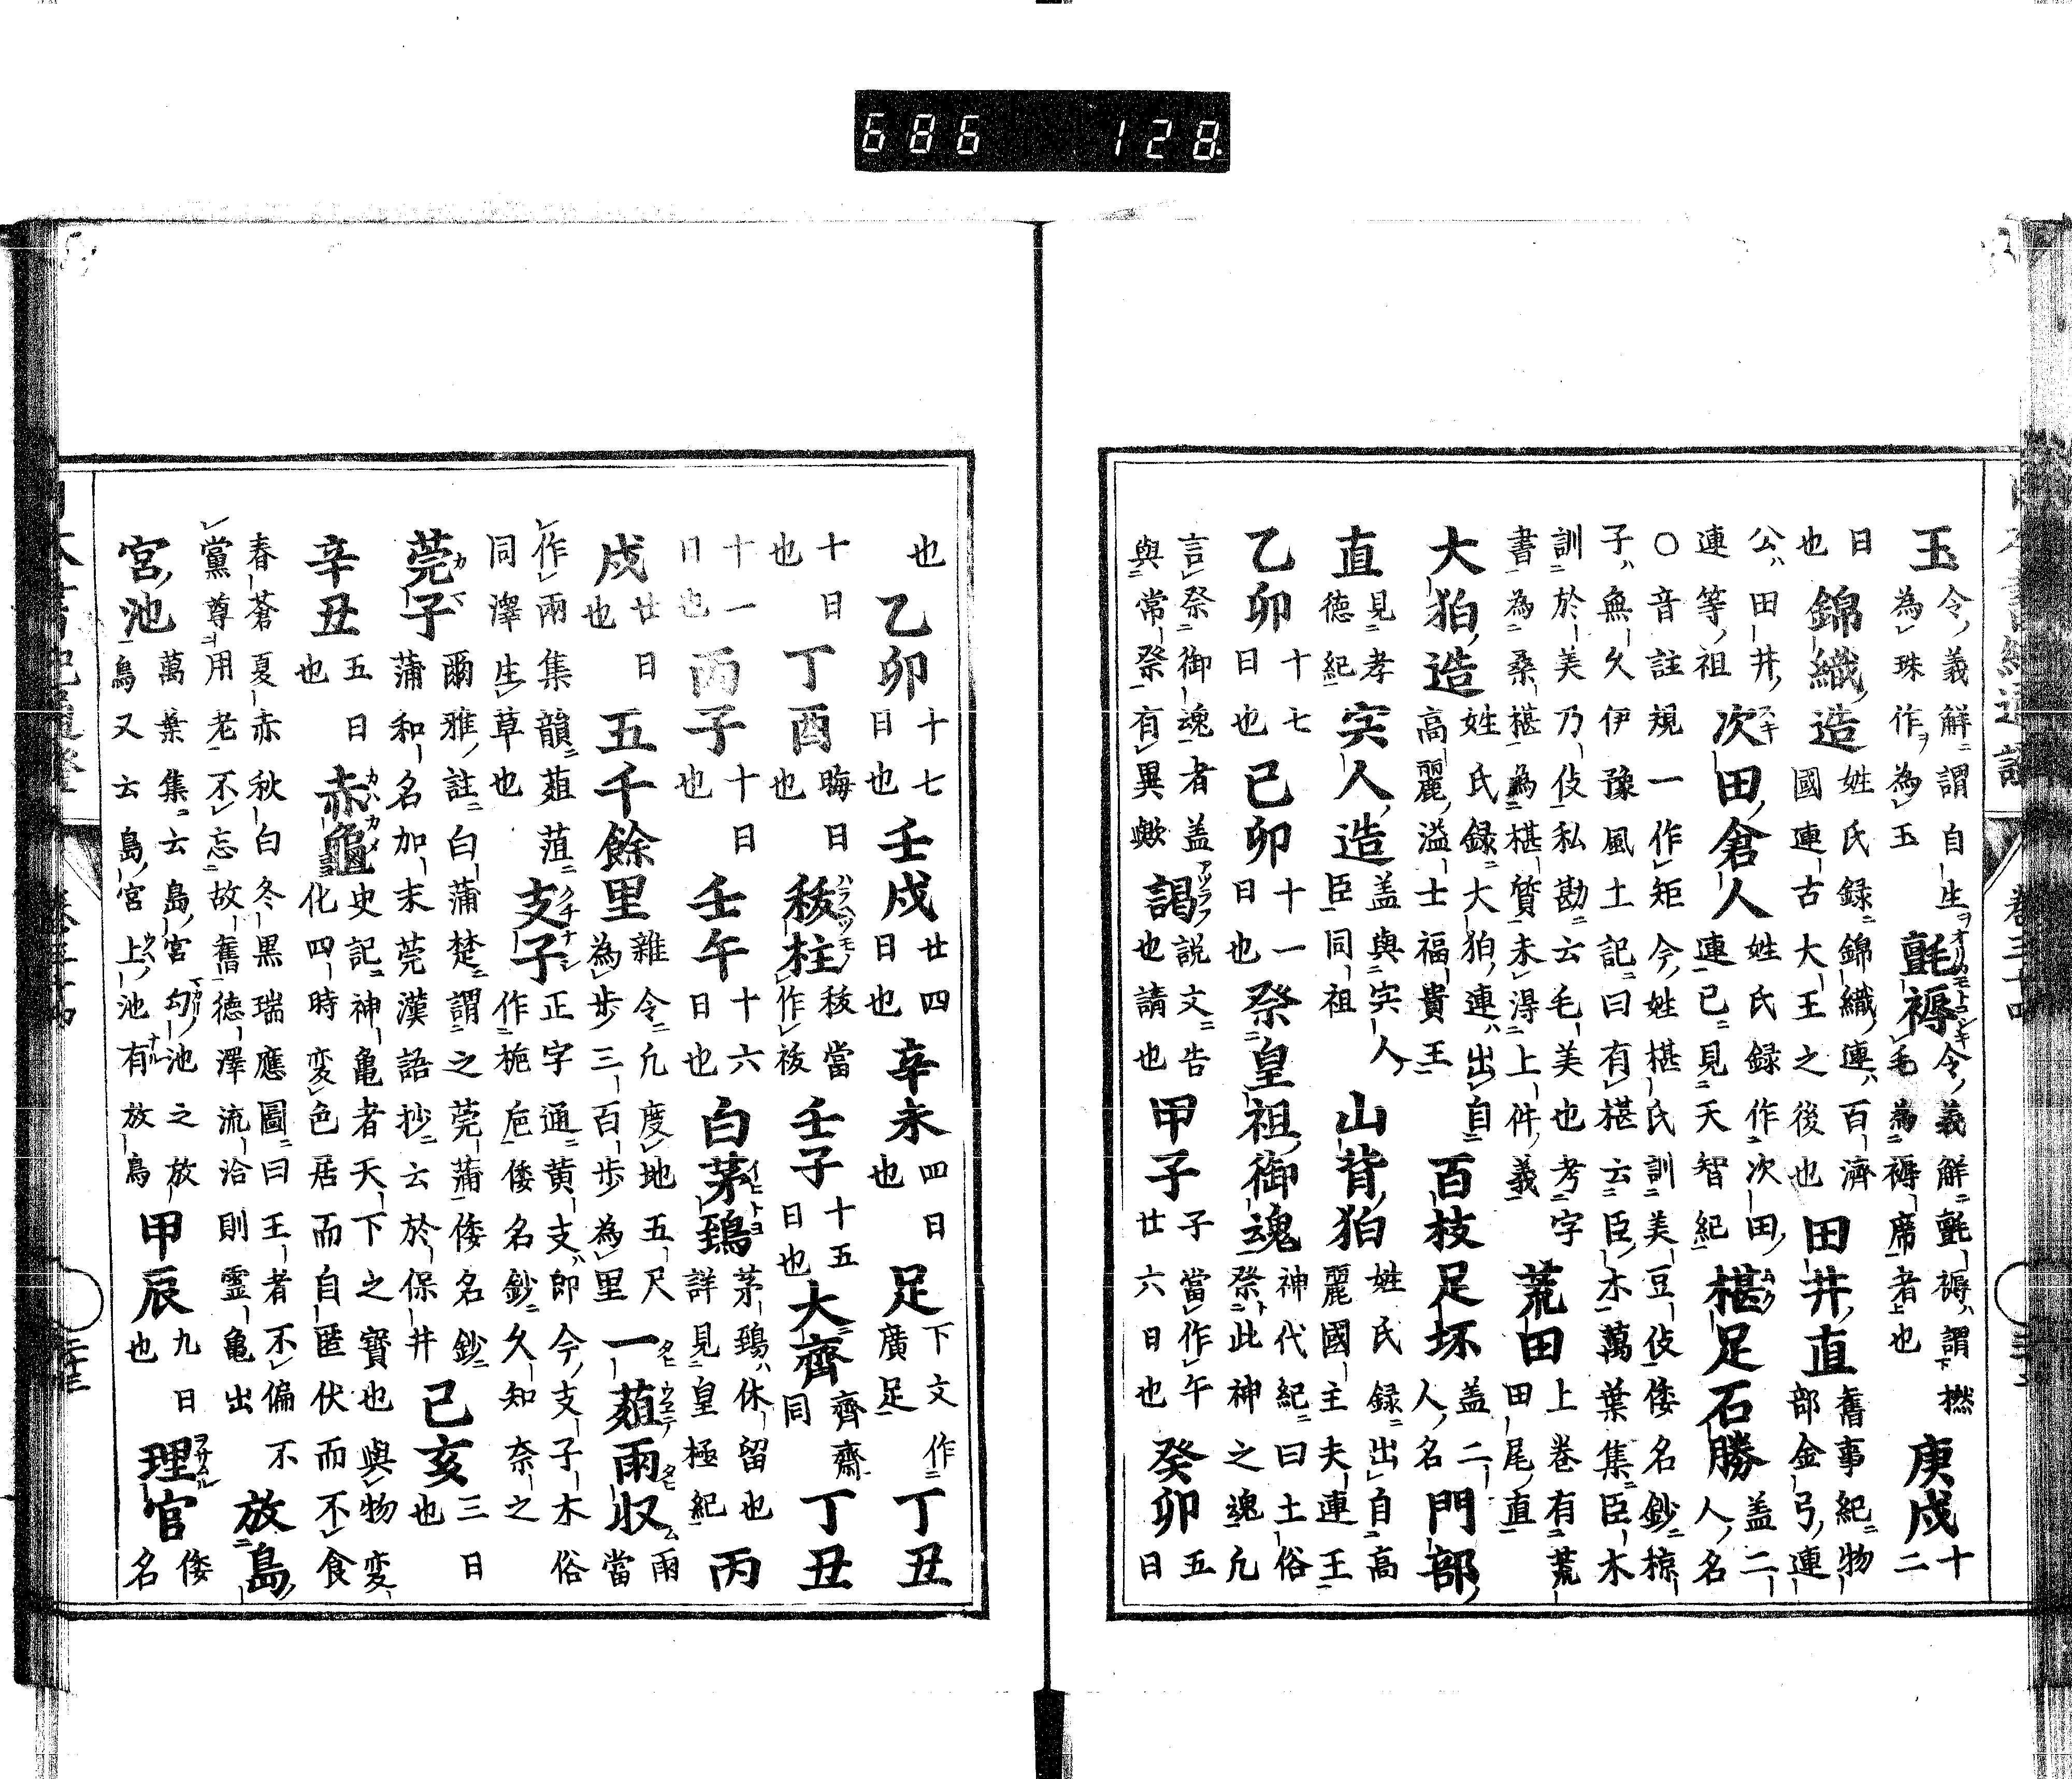 686 128
玉令義解謂自生為珠作為玉氈褥令義解氈褥謂撚毛為褥席者也庚戌十二
日也錦織造姓氏録錦織連百濟國連古大王之後也田井直舊事紀物部金弓連
公田井連等祖次田倉人姓氏録作次田連已見天智紀椹足石勝蓋二人名
○音註規一作矩今姓椹氏訓美豆伎倭名鈔椋
子無久伊豫風土記曰有椹云臣木萬葉集臣木
訓於美乃伎私勘云毛美也考字
書為桑椹為椹質未得上件義荒田上巻有荒田尾直
大狛造姓氏録大狛連出自高麗溢士福貴王百枝足坏蓋二人名門部
直見孝德紀宍人造蓋與宍人臣同祖山背狛姓氏録出自高麗國主夫連王
乙卯十七日也己卯十一日也祭皇祖御魂神代紀曰土俗祭此神之魂凡
言祭御魂者蓋與常祭有異歟謁説文告也請也甲子子當作午廿六日也癸卯五日
也乙卯十七日也壬戌廿四日也辛未四日也足下文作廣足丁丑
十日也丁酉晦日也秡柱秡當作祓壬子十五日也大齊齊齋同丁丑
十一日也丙子十日也壬午十六日也白茅鵄茅鵄休留也詳見皇極紀丙
戌廿日也五千餘里雜令凡度地五尺為歩三百歩為里一蒩雨収雨當
作兩集韻蒩菹同澤生草也支子正字通黄支即今支子木俗作梔巵倭名鈔久知奈之
莞子爾雅註白蒲楚謂之莞蒲倭名鈔蒲和名加末莞漢語抄云於保井己亥三日也
辛丑五日也赤龜史記神亀者天下之寶也與物變化四時変色居而自匿伏而不食
春蒼夏赤秋白冬黒瑞應圖曰王者不偏不
黨尊用老不忘故舊德澤流洽則霊亀出放島
宮池萬葉集云島宮勾池之放鳥又云島宮上池有放鳥甲辰九日也理官倭名